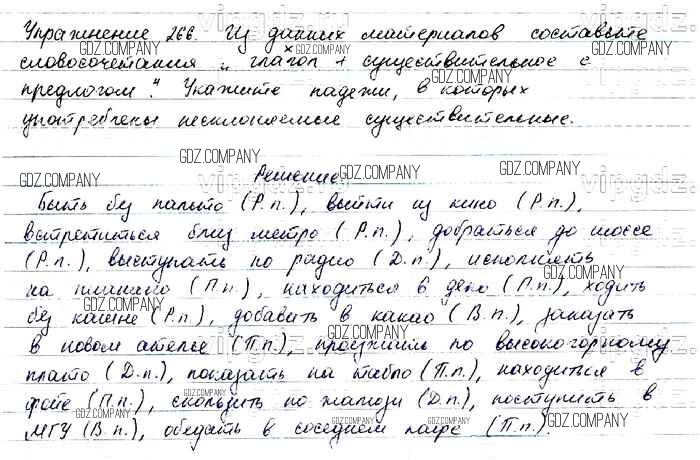 Упражнение 266. Из данных материалов составьте
словосочетания „глагол + существительное с
предлогом". Укажите падежи, в которых
употреблены несклоняемые существительные.
Решение.
Быть без пальто (Р.п.), выйти из кино (Р.п.),
встретиться близ метро (Р.п.), добраться до шоссе
(Р.п.), выступать по радио (Д.п.), исполнять
на пианино (П.п.), находиться в депо (П.п.), ходить
без кашне (Р.п.), добавить в какао (В.п.), заказать
в новом ателье (П.п.), проезжать по высокогорному
плато (Д.п.), показать на табло (П.п.), находиться в
фойе (П.п.), скользить по жалюзи (Д.п.), поступить в
МГУ (В.п.), обедать в соседнем кафе (П.п.).
GDZ.COMPANY
vipgdz.ru